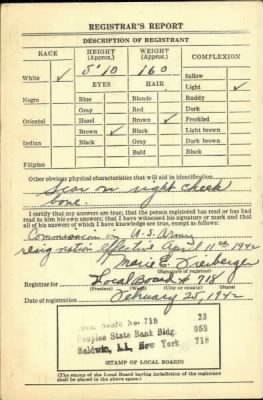 REGISTRAR'S REPORT
DESCRIPTION OF REGISTRANT
RACE HEIGHT (Approx.) WEIGHT (Approx.) COMPLEXION
5'10 160 Sallow
White ✓ EYES HAIR Light ✓
Negro Blue Blonde Ruddy
Gray Red Dark
Oriental Hazel Brown ✓ Freckled
Brown ✓ Black Light brown
Indian Black Gray Dark brown
Bald Black
Filipino
Other obvious physical characteristics that will aid in identification
Scar on right cheek
bone.
I certify that my answers are true; that the person registered has read or has had
read to him his own answers; that I have witnessed his signature or mark and that
all of his answers of which I have knowledge are true, except as follows:
Commission in U.S. Army
resignation effective April 11th 1942
Marie E.
(Signature of registrar)
Registrar for Local Board # 718
(Precinct) (Ward) (City or county) (State)
Date of registration February 25, 1942
Local Board No. 718 23
Peoples State Bank Bldg. 059
Baldwin, L.I., New York 718
(STAMP OF LOCAL BOARD)
(The stamp of the Local Board having jurisdiction of the registrant
shall be placed in the above space.)